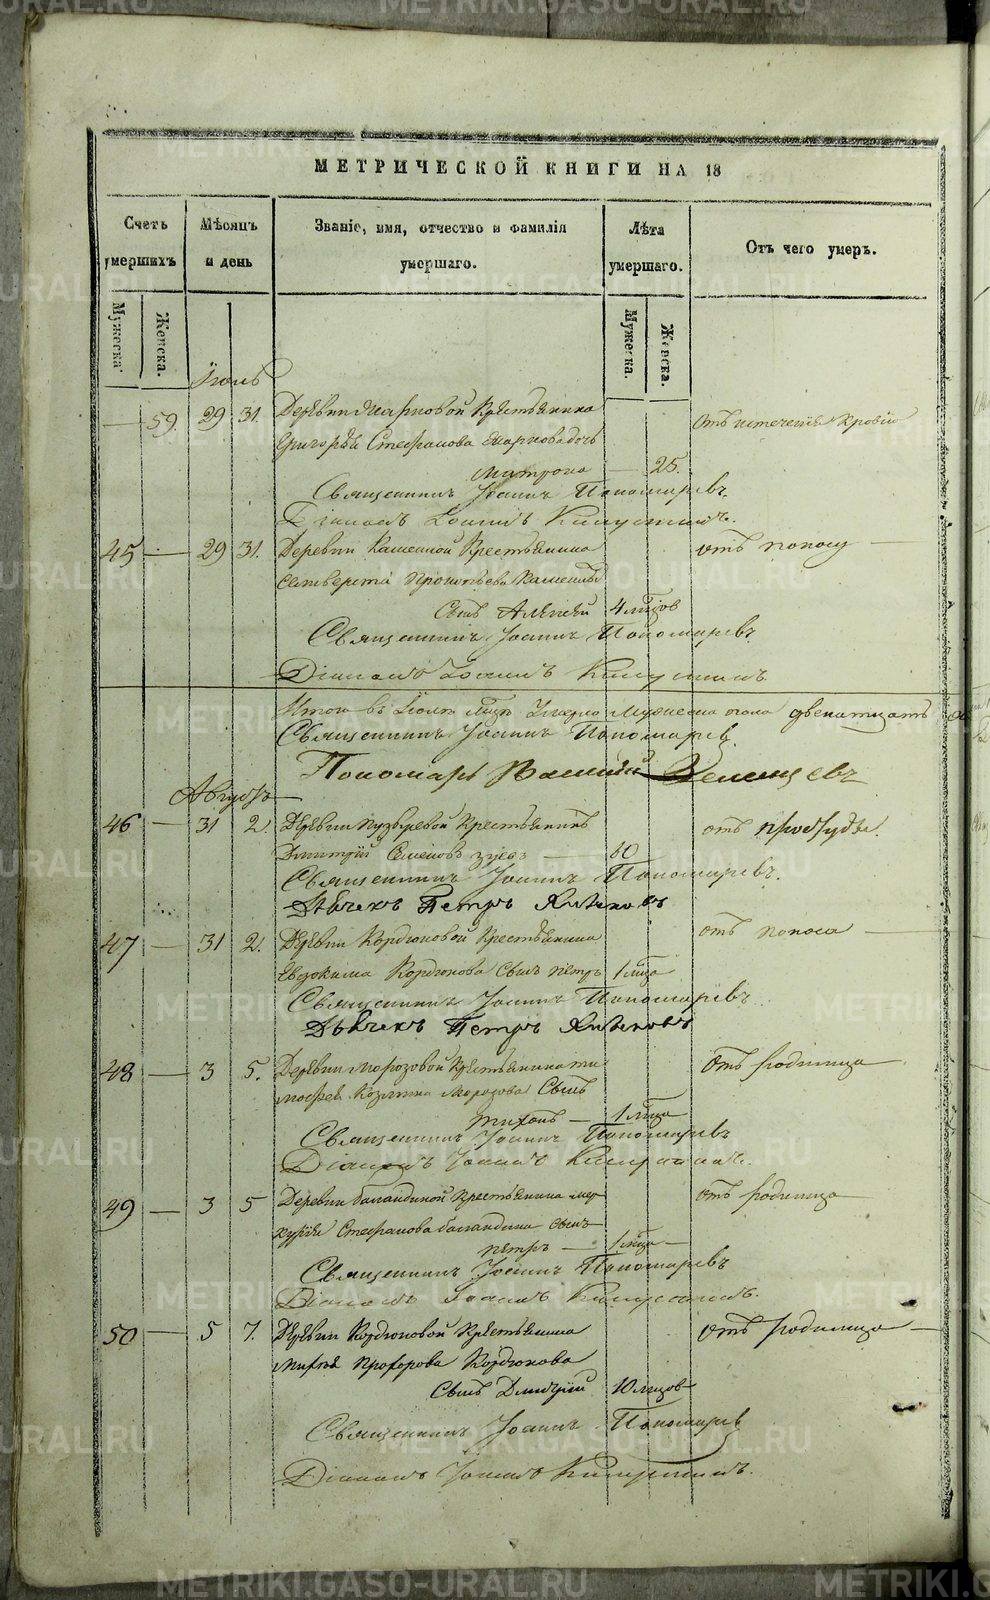 МЕТРИЧЕСКОЙ КНИГИ НА 18
Счетъ умершихъ
Мѣсяцъ и день
Званіе, имя, отчество и фамилія умершаго.
Лѣта умершаго.
Отъ чего умеръ.
Мужеска.
Женска.
Мужеска.
Женска.
Іюль
59 29 31. Деревни Марковой Крестьянина отъ истеченія кровію
Григорья Стефанова Маркова дочь
Матрона 25.
Священникъ Іоаннъ Пономаревъ.
Діаконъ Іоаннъ
45 29 31. Деревни Каменной Крестьянина отъ поносу
Селиверста Прокопьева
Сынъ Алексѣй 4 мѣсцовъ
Священникъ Іоаннъ Пономаревъ
Діаконъ Іоаннъ
Итого въ Іюлѣ мѣсцѣ умерло Мужеска пола двенатцать
Священникъ Іоаннъ Пономаревъ.
Пономарь Василий
Августъ
46 31 2. Деревни Пузыревой Крестьянинъ отъ простуды.
Дмитрій Семеновъ Зуевъ 60
Священникъ Іоаннъ Пономаревъ.
Дьячекъ Петръ
47 31 2. Деревни Кордюковой Крестьянина отъ поноса
Евдокима Кордюкова сынъ Петръ 1 мѣсца
Священникъ Іоаннъ Пономаревъ
Дьячекъ Петръ
48 3 5. Деревни Морозовой Крестьянина Ти отъ родимца
мофея Козмина Морозова Сынъ
Тихонъ 1 мѣсца
Священникъ Іоаннъ Пономаревъ
Діаконъ Іоаннъ
49 3 5 Деревни Баландиной Крестьянина Мер отъ родимца
курья Стефанова Баландина сынъ
Петръ 1 мѣсца
Священникъ Іоаннъ Пономаревъ
Діаконъ Іоаннъ
50 5 7. Деревни Кордюковой Крестьянина отъ родимца
Прохорова Кордюкова
Сынъ Дмитрій 10 мѣсцовъ
Священникъ Іоаннъ Пономаревъ
Діаконъ Іоаннъ
METRIKI.GASO-URAL.RU